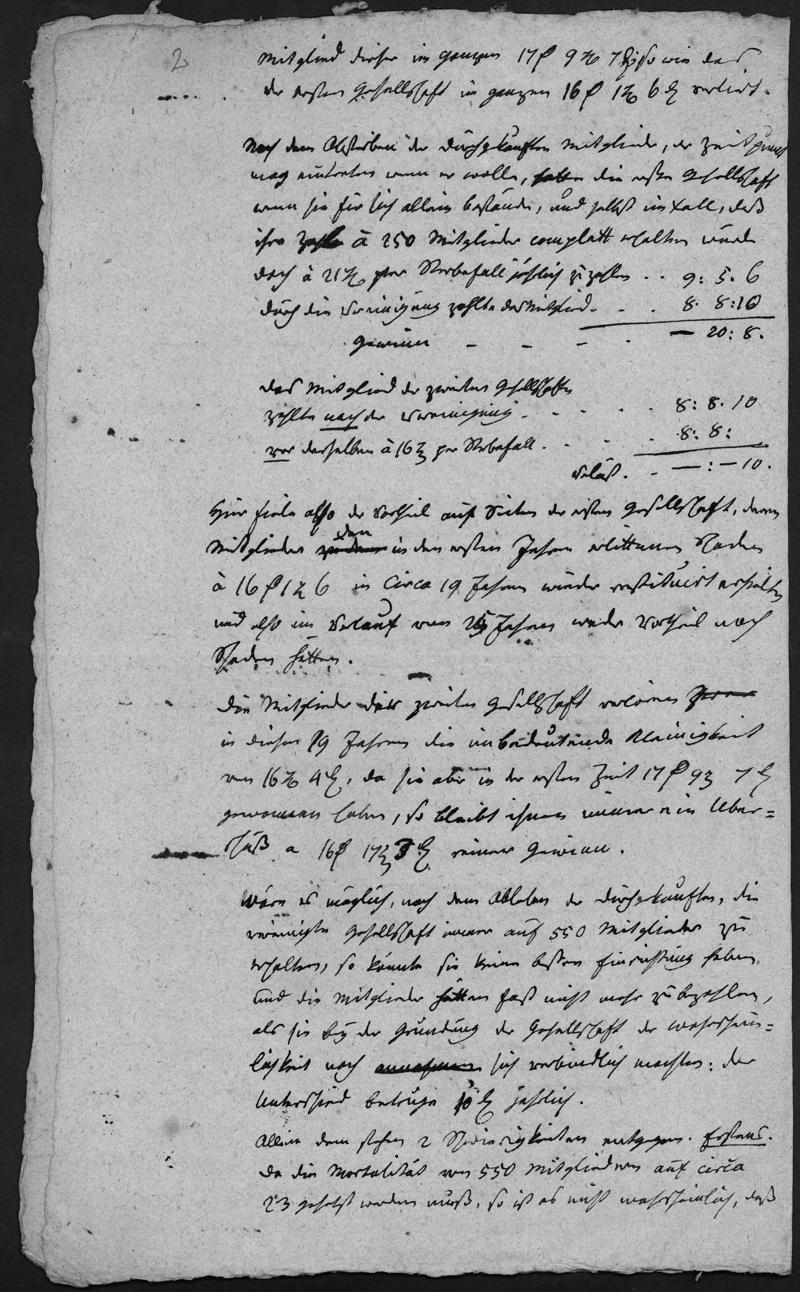 2
Mitglied dieser im ganzen 17 f 9 7 so wie das
der ersten Gesellschaft im ganzen 16 f 1 6 verliert.
Nach dem Absterben der durchgekauften Mitglieder, der Zeitpunct
mag eintreten wenn er wolle, hatte die erste Gesellschaft
wenn sie für sich allein bestände, und selbst im Fall, daß
ihre Zahl à 250 Mitglieder complett erhalten würde
doch à 21 per Sterbefall jährlich zu zahlen . . 9: 5. 6
durch die Vereinigung zahlte das Mitglied. - . . 8. 8:10
Gewinn - - - . — 20: 8.
Das Mitglied der zweiten Gesellschaft
zahlte nach der Vereinigung. - . . . 8: 8. 10
vor derselben à 16 per Sterbefall. - . . . 8: 8:
Verlust. . - — : — 10.
Hier fiele also der Vortheil auf Seiten der ersten Gesellschaft, deren
Mitglieder den in den ersten Jahren erlittenen Schaden
à 16 f 1 6 in circa 19 Jahren wieder restituirt erhielten
und also im Verlauf von Jahren weder Vortheil noch
Schaden hätten.
Die Mitglieder der zweiten Gesellschaft verlören
in diesen 19 Jahren die unbedeutende Kleinigkeit
von 16 4, da sie aber in der ersten Zeit 17 f 9 7
gewonnen haben, so bleibt ihnen immer ein Über=
schuß a 16 f 17 3 reiner Gewinn.
Wäre es möglich, nach dem Ableben der durchgekauften, die
vereinigte Gesellschaft immer auf 550 Mitglieder zu
erhalten, so könnte sie keine bessere Einrichtung haben
und die Mitglieder hätten fast nicht mehr zu bezahlen,
als sie bey der Gründung der Gesellschaft der wahrschein=
lichkeit nach sich verbindlich machten: der
Unterschied betrüge 10 jährlich.
Allein dem stehen 2 Schwierigkeiten entgegen. Erstens.
Da die Mortalität von 550 Mitgliedern auf circa
23 gesetzt werden muß, so ist es nicht wahrscheinlich, daß